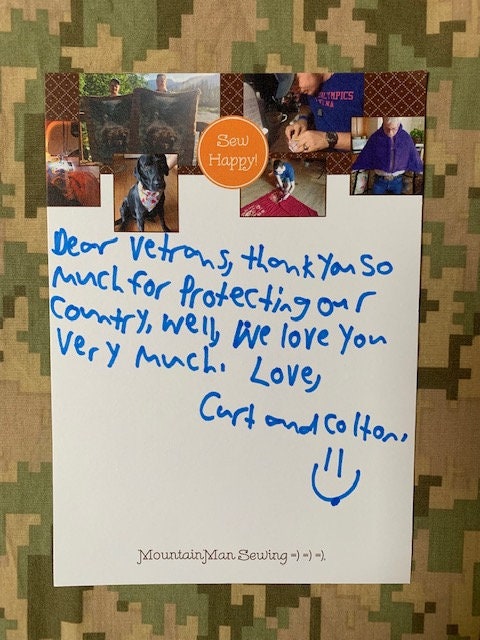 OLYMPICS
Sew
Happy!
Dear Vetrans, thank you so
much for Protecting our
Country, well, We love you
very much. Love,
Curt and Colton.
MountainMan Sewing =) =) =).